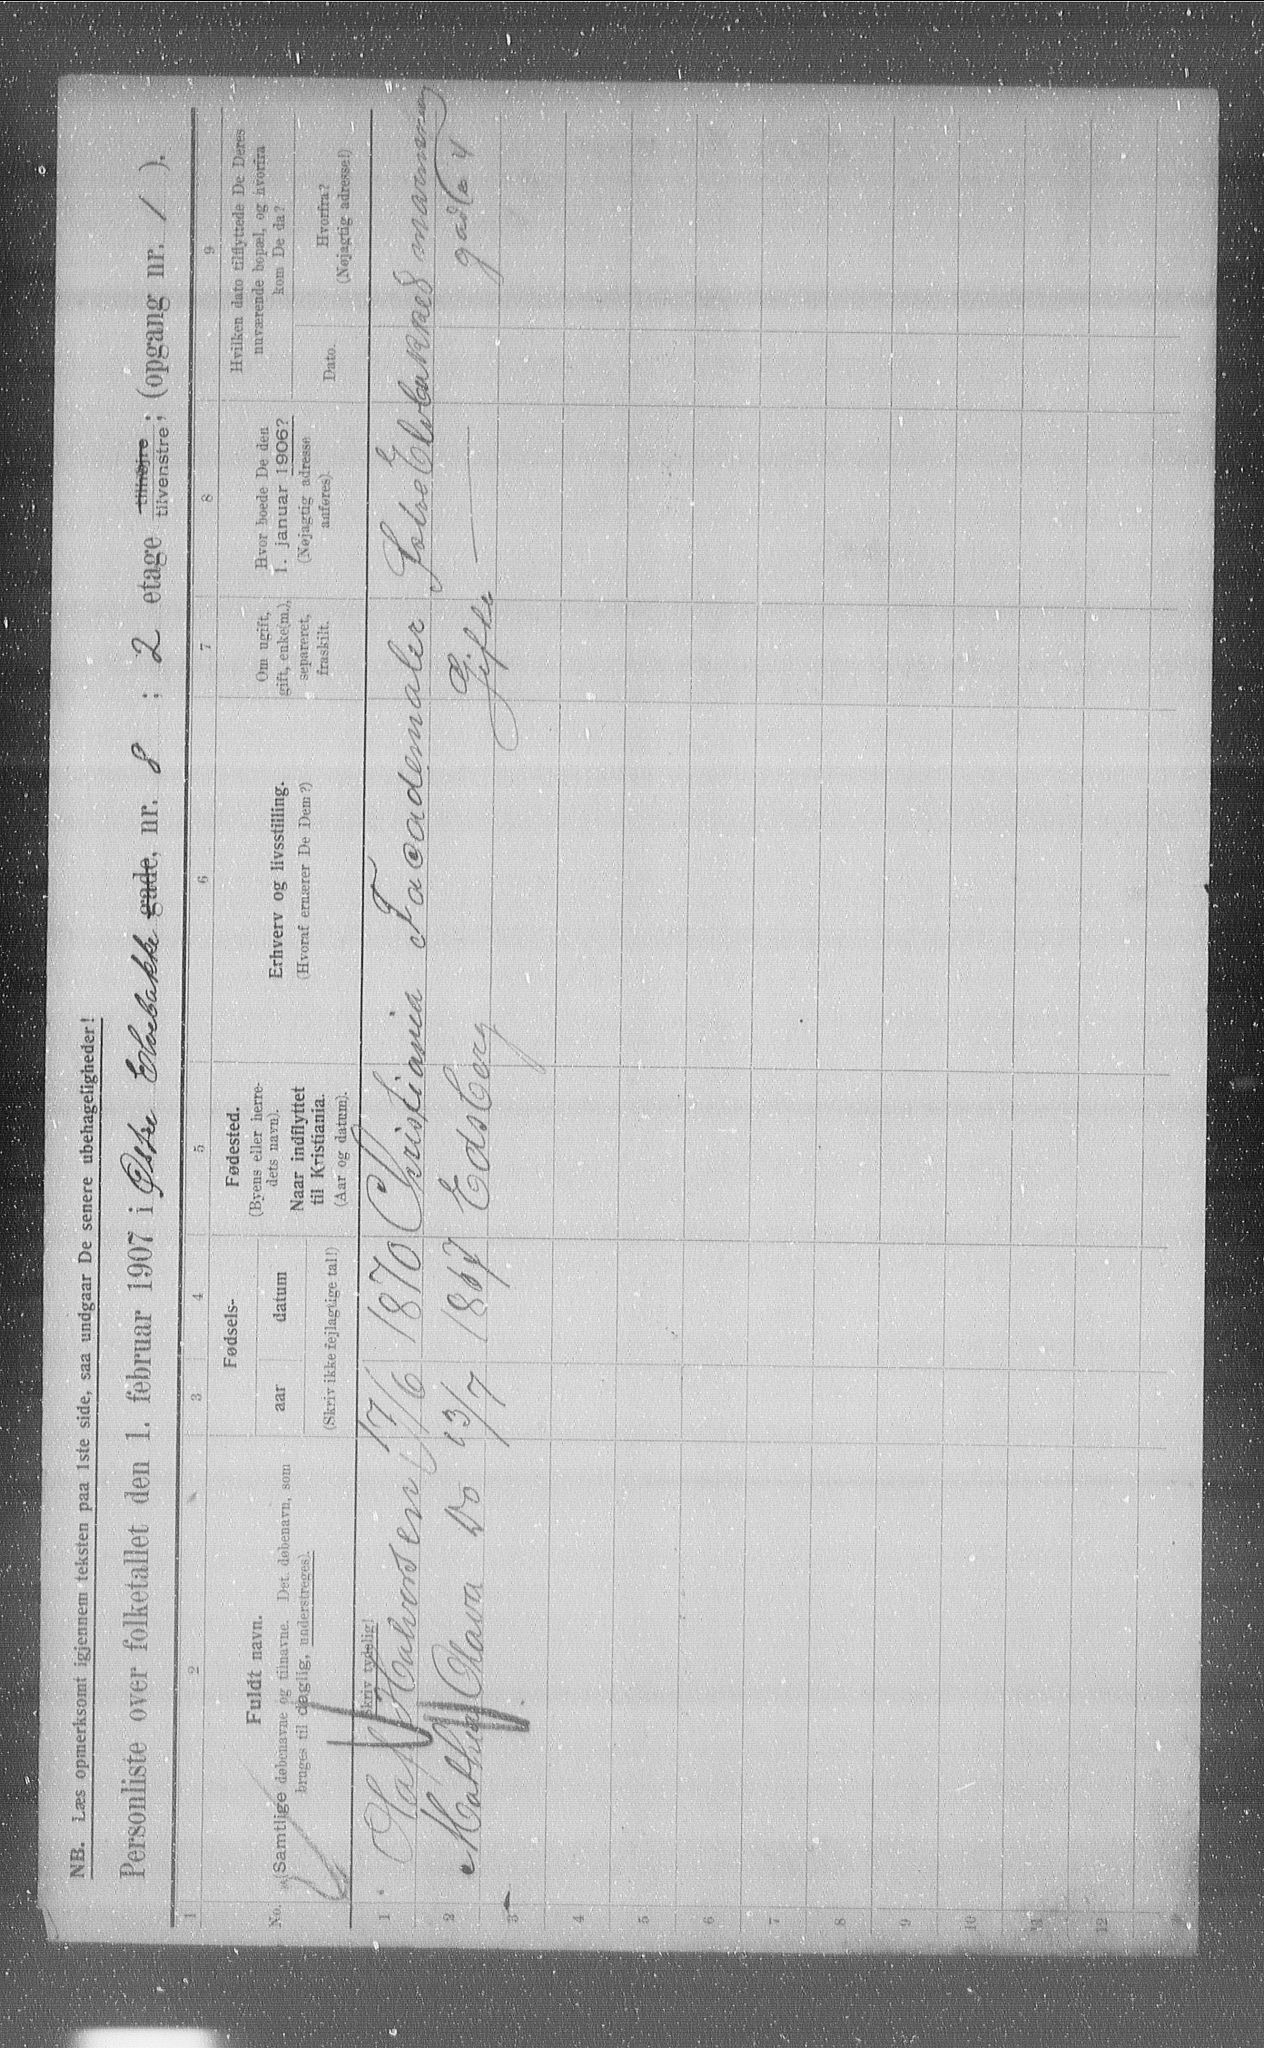 NB. Læs opmerksomt igjennem teksten paa 1ste side, saa undgaar De senere ubehageligheder!
Personliste over folketallet den 1. februar 1907 i Østre Elvebakke gade, nr. 8 ; 2 etage tilhøjre tilvenstre; (opgang nr. 1 ).
1 2 3 4 5 6 7 8 9
No.
Fuldt navn.
(Samtlige døbenavne og tilnavne. Det døbenavn, som
bruges til daglig, understreges).
Skriv tydelig!
Fødsels-
aar datum
(Skriv ikke fejlagtige tal!)
Fødested.
(Byens eller herre-
dets navn).
Naar indflyttet
til Kristiania.
(Aar og datum).
Erhverv og livsstilling.
(Hvoraf ernærer De Dem?)
Om ugift,
gift, enke(m.),
separeret,
fraskilt.
Hvor boede De den
1. januar 1906?
(Nøjagtig adresse
anføres).
Hvilken dato tilflyttede De Deres
nuværende bopæl, og hvorfra
kom De da?
Dato.
Hvorfra?
(Nøjagtig adresse!)
1 Olaf Halvorsen 17/6 1870 Christiania Facademaler
2 Mathea Olava Do 23/7 1867 Edsberg Gifte gade 4
3
4
5
6
7
8
9
10
11
12